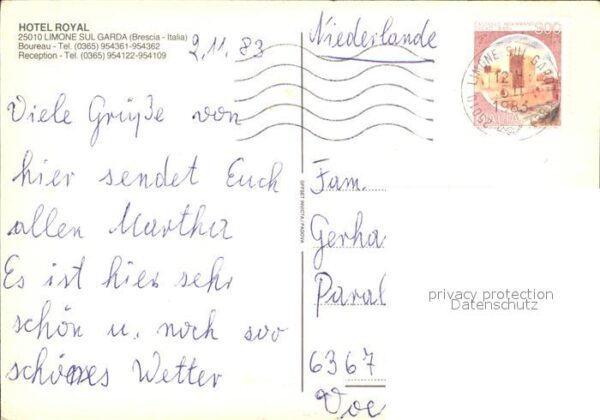 HOTEL ROYAL
25010 LIMONE SUL GARDA (Brescia - Italia)
Boureau - Tel. (0365) 954361-954362
Reception - Tel. (0365) 954122-954109
2.11.83
Niederlande
300
25010 LIMONE SUL GARDA
1983
Viele Grüße von
hier sendet Euch
allen Martha
Es ist hier sehr
schön u. noch soo
schönes Wetter
OFFSET INVICTA / PADOVA
Fam.
Gerha
Paral
6367
Voe
privacy protection
Datenschutz